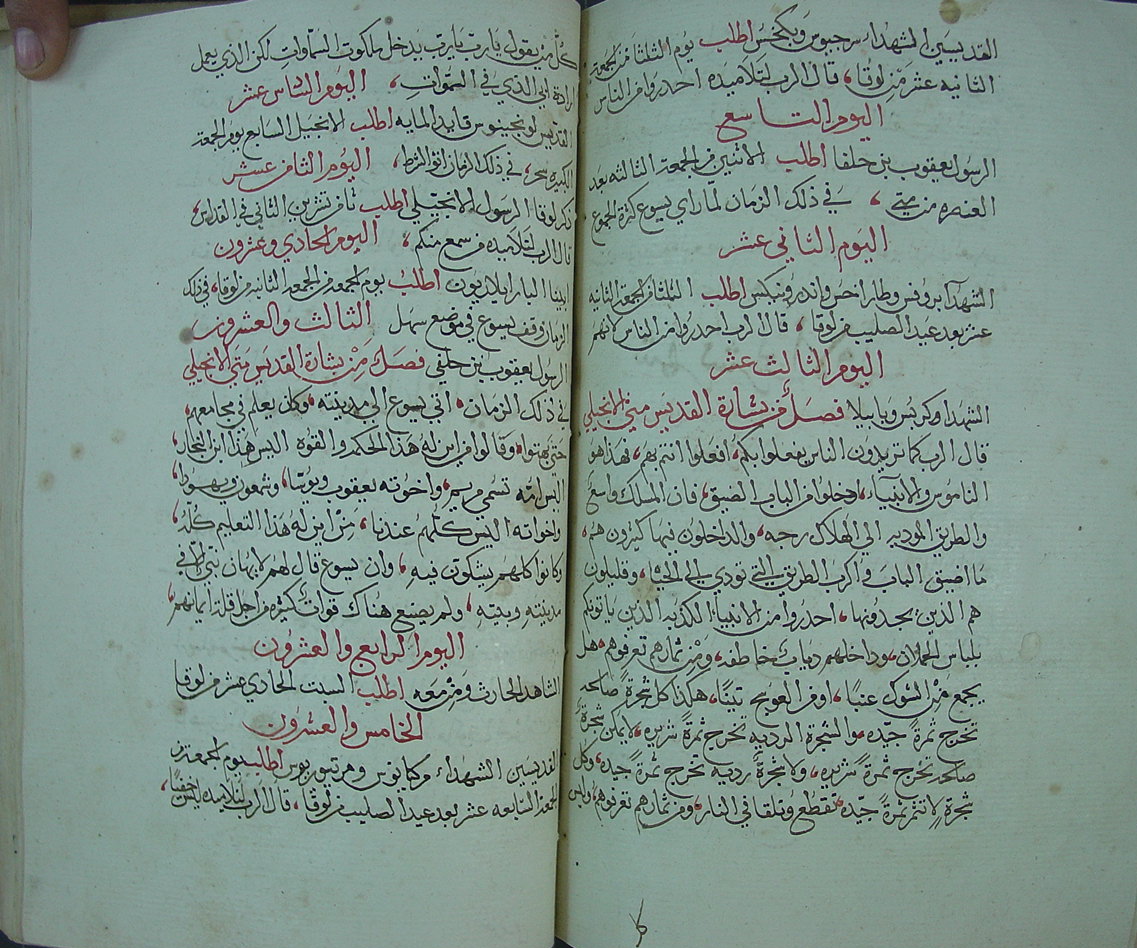 القديسين الشهدا سرجيوس وبكخس اطلب يوم الثلثا من الجمعة
الثانيه عشر من لوقا، قال الرب لتلاميده احدروا من الناس
اليوم التاسع
الرسول يعقوب بن حلفا اطلب الاثنين من الجمعة التالته بعد
العنصره من متي، في ذلك الزمان لما راي يسوع كثرة الجموع
اليوم الثاني عشر
الشهدآ بروبس وطاراخس واندرونيكس اطلب الثلثا من الجمعة الثانيه
عشر بعد عيد الصليب من لوقا، قال الرب احدروا من الناس لانهم
اليوم الثالث عشر
الشهدا وكربس وبابيلا فصل من بشارة القديس متي الانجيلي
قال الرب كما تريدون الناس يفعلوا بكم، افعلوا انتم بهم، فهذا هو
الناموس والانبيآء، ادخلوا من الباب الضيق، فان المسلك واسع
والطريق الموديه الي الهلاك رحبه، والداخلون فيها كثيرون هم،
ما اضيق الباب واكرب الطريق التي تودي الي الحياه، وقليلون
هم الذين يجدونها، احدروا من الانبياء الكدبه الدين ياتونكم
بلباس الحملان، وداخلهم دياب خاطفه، ومن ثمارهم تعرفوهم، هل
يجمع من الشوك عنبا، او من العوسج تينا، هكذا كل شجرة صالحه
تخرج ثمرة جيده، والشجرة الرديه تخرج ثمرة شريره، لا يمكن شجرة
صالحه تخرج ثمرة شريره، ولا شجرة رديه تخرج ثمرة جيده، وكل
شجرة لا تثمر ثمرة جيده، تقطع وتلقا في النار، ومن ثمارهم تعرفوهم، وليس
كل من يقول يارب يارب يدخل ملكوت السماوات لكن الذي يعمل
ارادة ابي الذي في السموات، اليوم السادس عشر
القديس لونجينوس قايد المايه اطلب الانجيل السابع يوم الجمعة
الكبيره سحر، في ذلك الزمان الشرط، اليوم الثامن عشر
ذكر لوقا الرسول الانجيلي اطلب ثامن تشرين الثاني في القداس،
قال الرب لتلاميده من سمع منكم، اليوم الحادي وعشرون
ابينا البار ايلاريون اطلب يوم الجمعه من الجمعة الثانيه من لوقا، في ذلك
الزمان وقف يسوع في موضع سهل الثالث والعشرون
الرسول يعقوب بن حلفي فصل من بشارة القديس متي الانجيلي
في ذلك الزمان، اتي يسوع الي مدينته، وكان يعلم في مجامعهم،
حتي بهتوا، وقالوا من اين له هذا الحكمه والقوه اليس هذا ابن النجار
اليس امه تسمي مريم، واخوته يعقوب ويوسا، وشمعون ويهودا،
واخواته اليس كلهم عندنا، من اين له هذا التعليم كله،
وكانوا كلهم يشكون فيه، وان يسوع قال لهم لا يهان نبي الا في
مدينته وبيته، ولم يصنع هناك قوات كثيره من اجل قلة ايمانهم،
اليوم الرابع والعشرون
الشاهد الحارث ومن معه اطلب السبت الحادي عشر من لوقا
الخامس والعشرون
القديسين الشهداء مركيانوس ومرتيريوس اطلب يوم الجمعه من
الجمعة السابعه عشر بعد عيد الصليب من لوقا، قال الرب لتلاميده ليس خفيا،